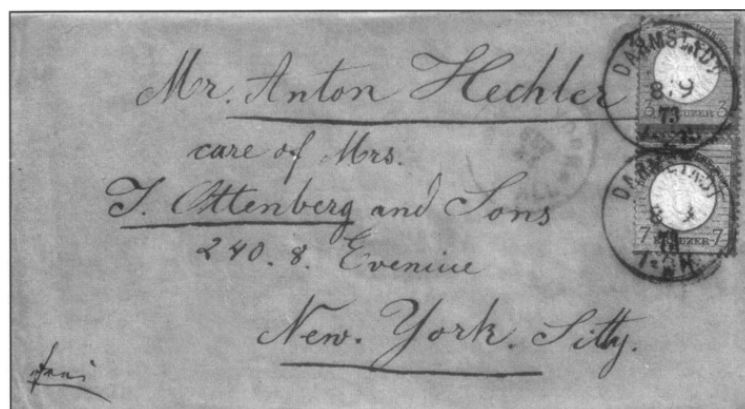 Mr. Anton Hechler
care of Mrs.
J. Ottenberg and Sons
240. 8. Eveniue
New. York. Sitty.
franc
DARMSTADT
8 9
73
3 3
KREUZER
DARMSTADT
7 KREUZER 7